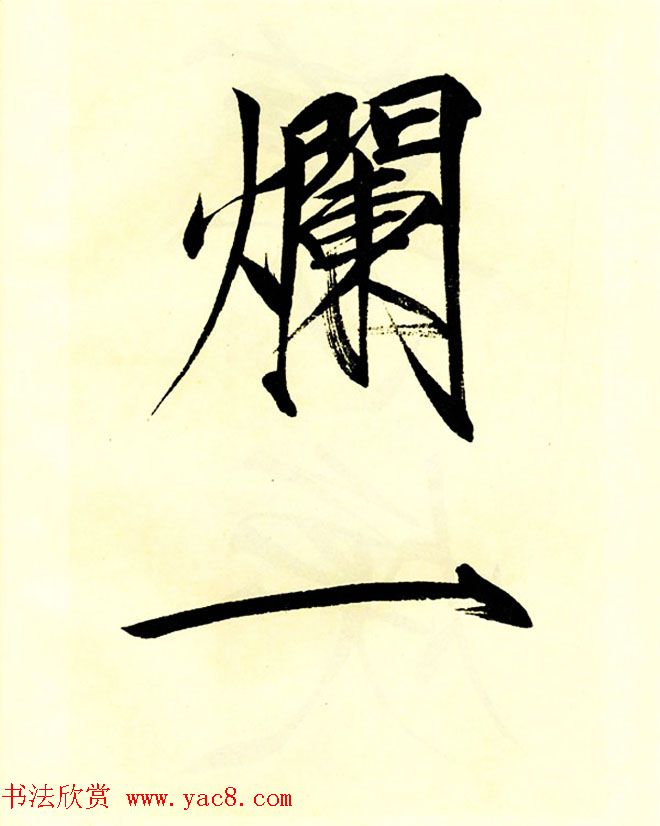 爛
一
书法欣赏 www.yac8.com